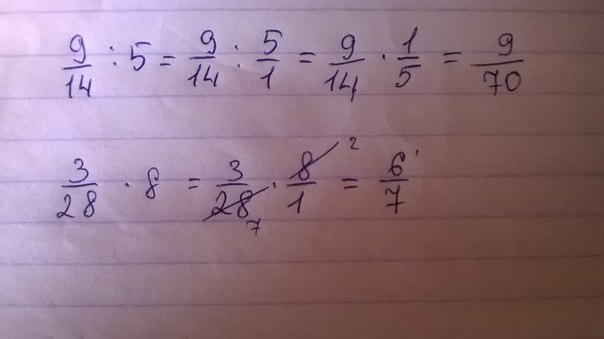 9/14 : 5 = 9/14 : 5/1 = 9/14 · 1/5 = 9/70
3/28 · 8 = 3/28 7 · 8/1 2 = 6/7